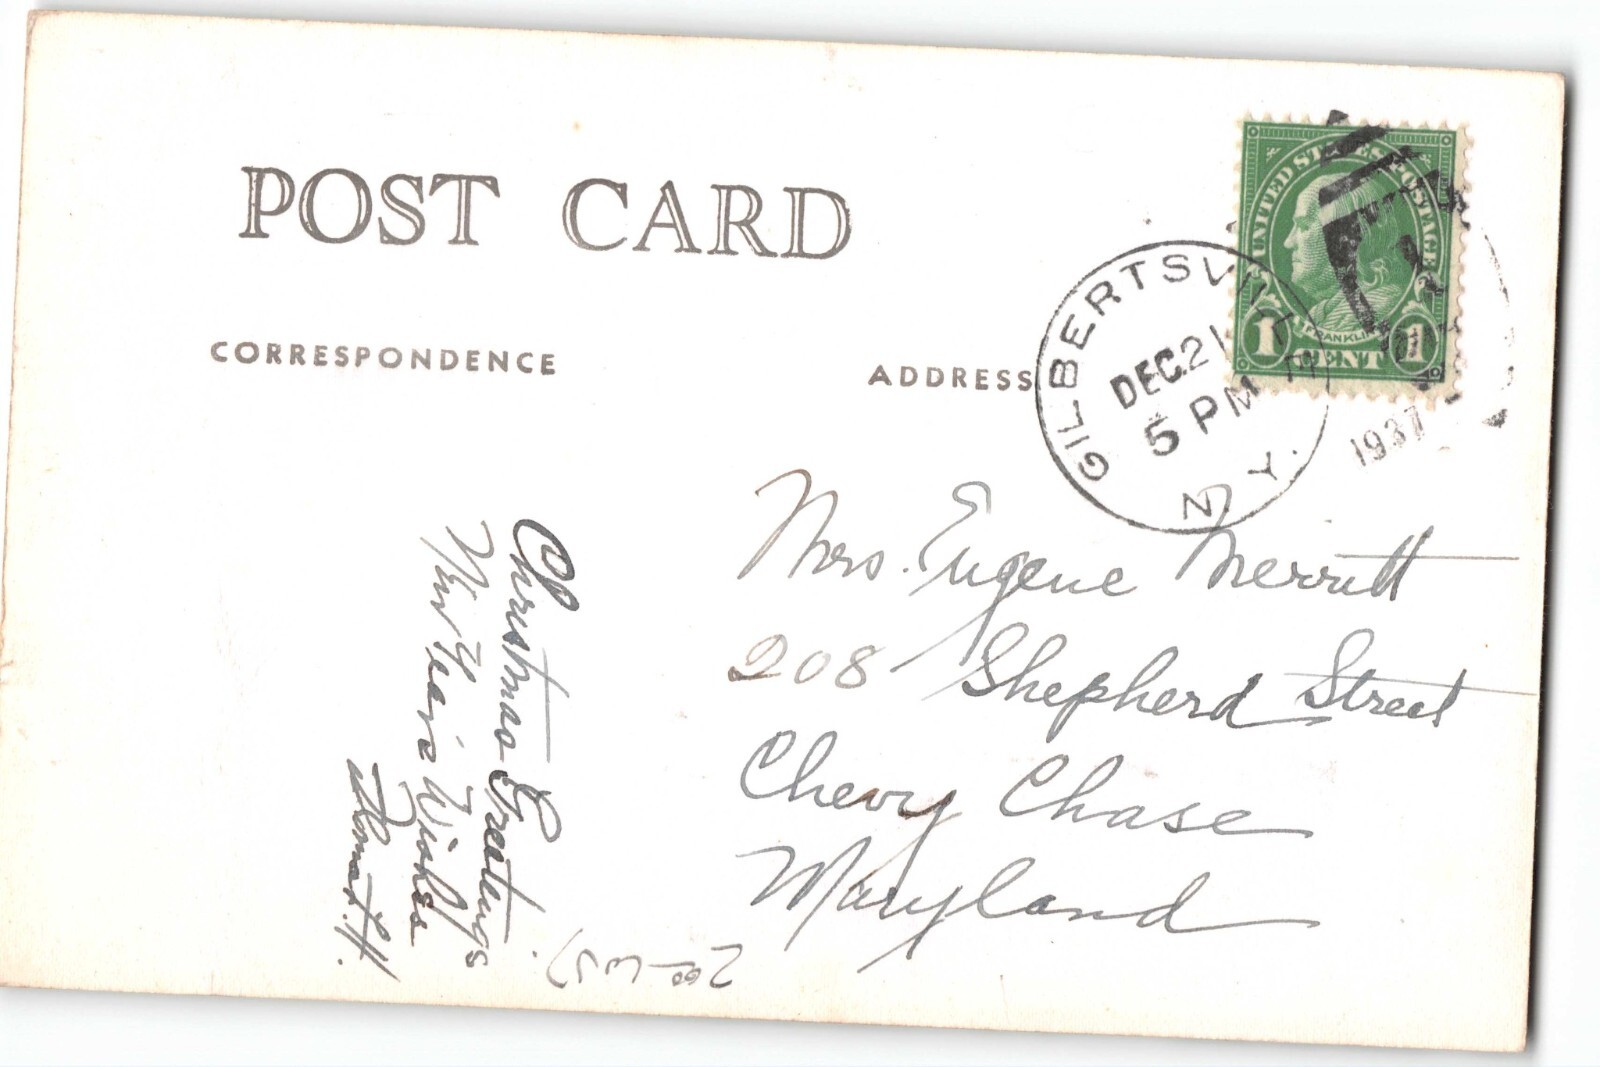 POST CARD
CORRESPONDENCE
ADDRESS
UNITED STATES POSTAGE
FRANKLIN
1 CENT 1
GILBERTSVILLE
DEC 21
5 PM
N.Y.
1937
Mrs. Eugene Merritt
208 Shepherd Street
Chevy Chase
Maryland
Christmas Greetings
New Year's Wishes
H.